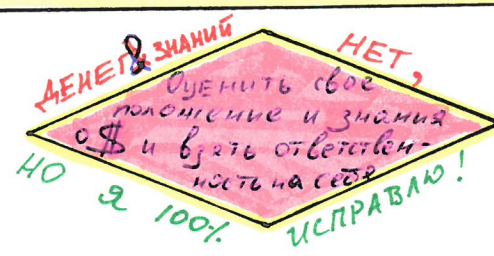 ДЕНЕГ & ЗНАНИЙ
НЕТ,
Оценить свое
положение и знания
о $ и взять ответствен-
ность на себя
НО Я 100%
ИСПРАВЛЮ!